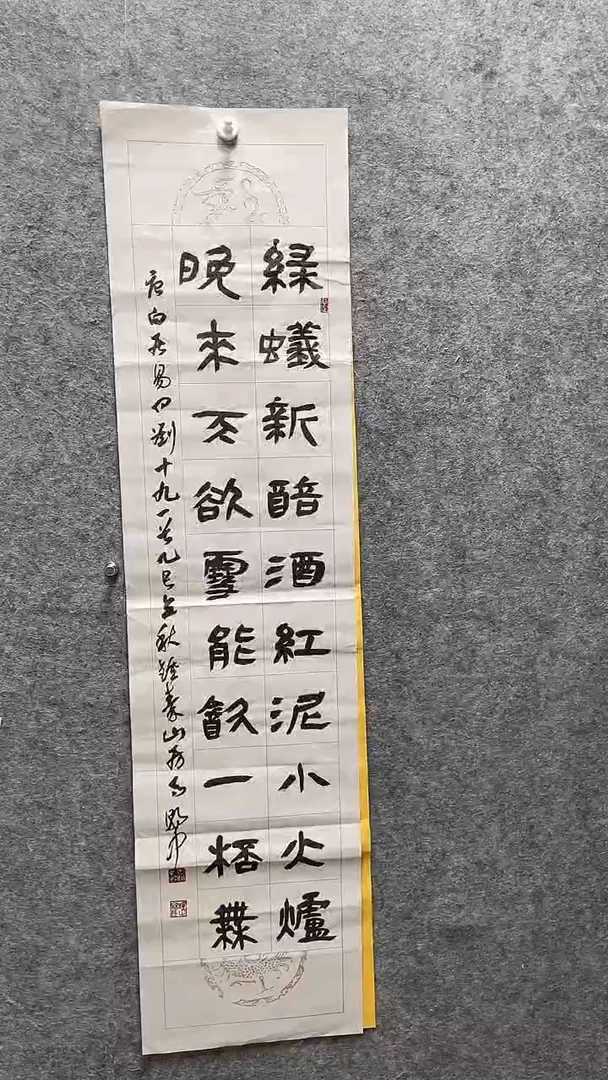 綠蟻新醅酒紅泥小火爐
晚來天欲雪能飲一桮無
唐白居易问劉十九一首乙巳立秋山房